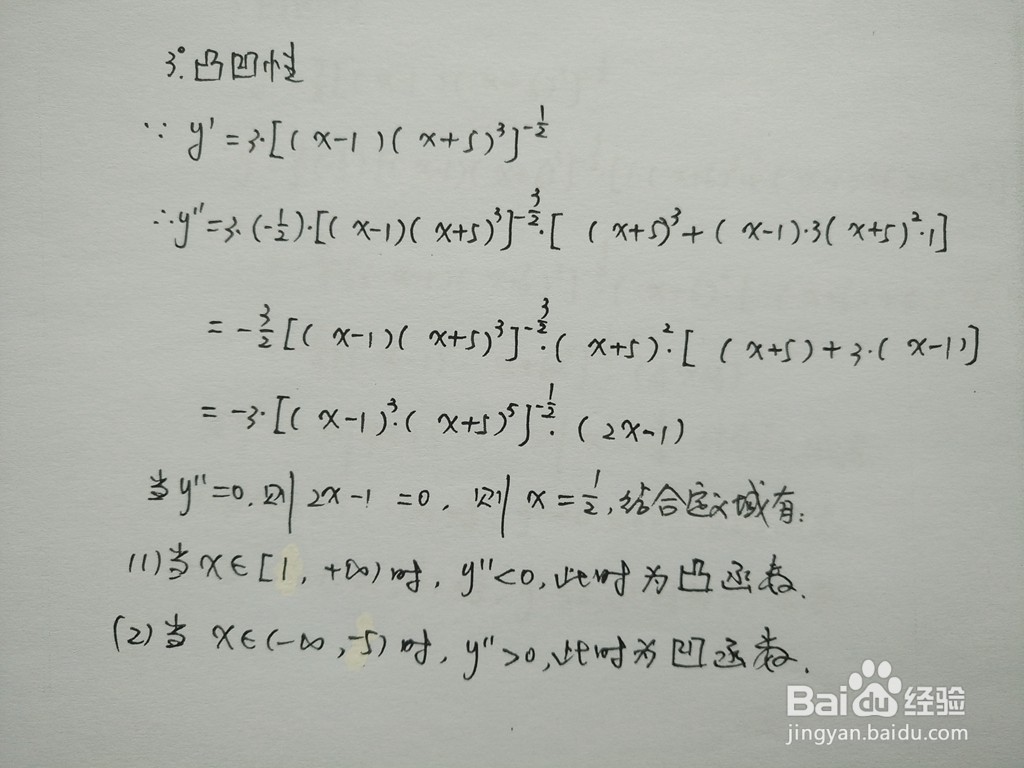 3°.凸凹性
∵ y'=3·[(x-1)(x+5)³]^{-1/2}
∴y''=3·(-1/2)·[(x-1)(x+5)³]^{-3/2}·[(x+5)³+(x-1)·3(x+5)²·1]
=-3/2[(x-1)(x+5)³]^{-3/2}·(x+5)²·[(x+5)+3·(x-1)]
=-3·[(x-1)³·(x+5)⁵]^{-1/2}·(2x-1)
当y''=0,则2x-1=0,则x=1/2,结合定义域有:
(1)当x∈[1,+∞)时,y''<0,此时为凸函数.
(2)当x∈(-∞,-5)时,y''>0,此时为凹函数.
Baidu经验
jingyan.baidu.com